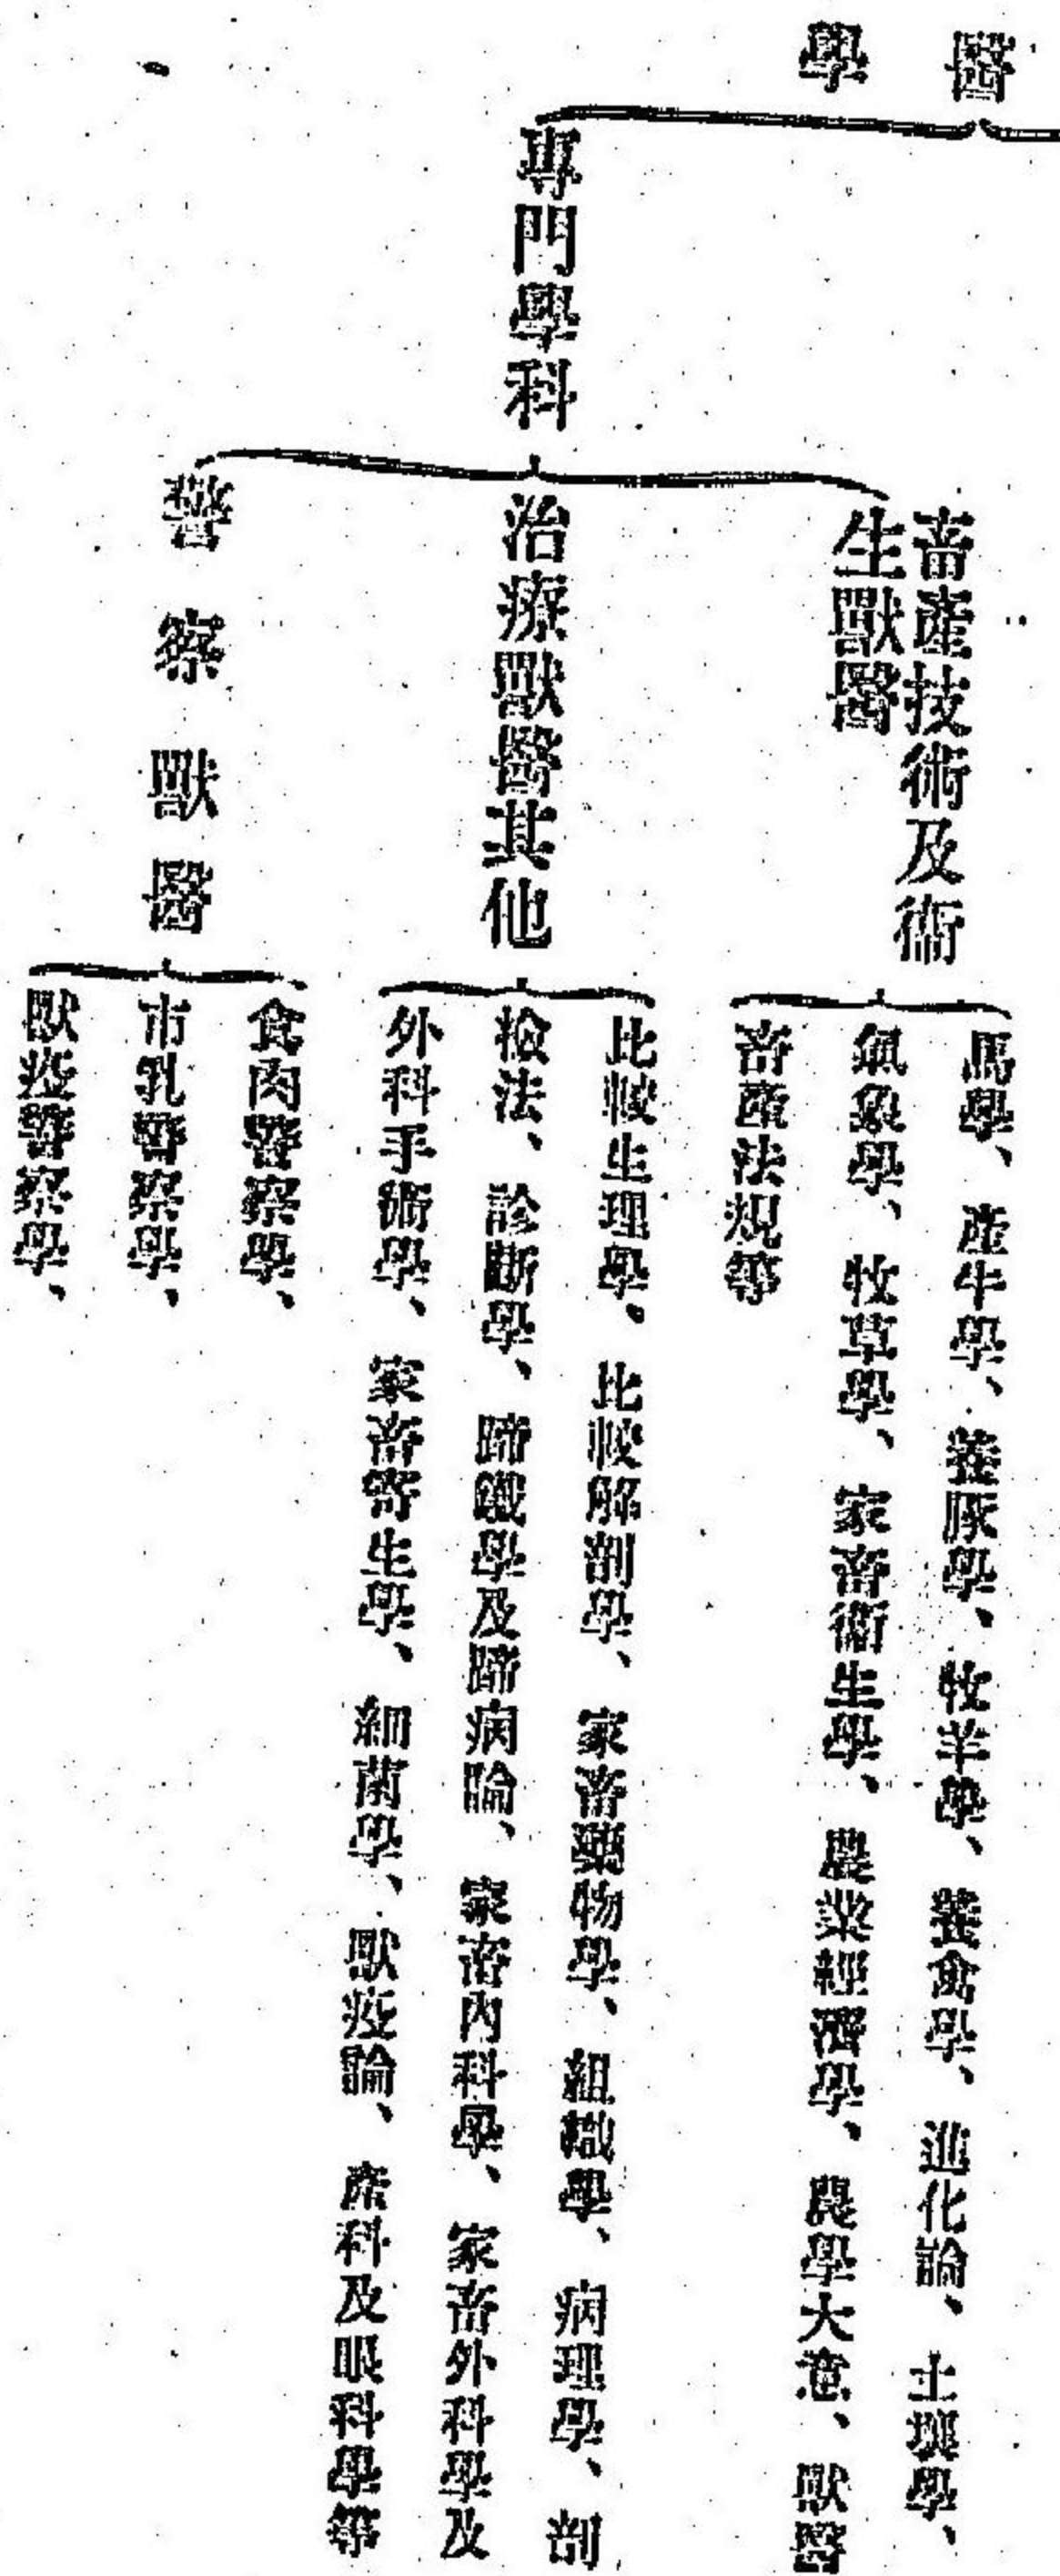 醫
學
專門學科
畜產技術及衛
生獸醫
馬學、產牛學、養豚學、牧羊學、養禽學、進化論、土壤學、
氣象學、牧草學、家畜衛生學、農業經濟學、農學大意、獸醫
畜產法規等
治療獸醫其他
比較生理學、比較解剖學、家畜藥物學、組織學、病理學、剖
檢法、診斷學、蹄鐵學及蹄病論、家畜內科學、家畜外科學及
外科手術學、家畜寄生學、細菌學、獸疫論、產科及眼科學等
警察獸醫
食肉警察學、
市乳警察學、
獸疫警察學、